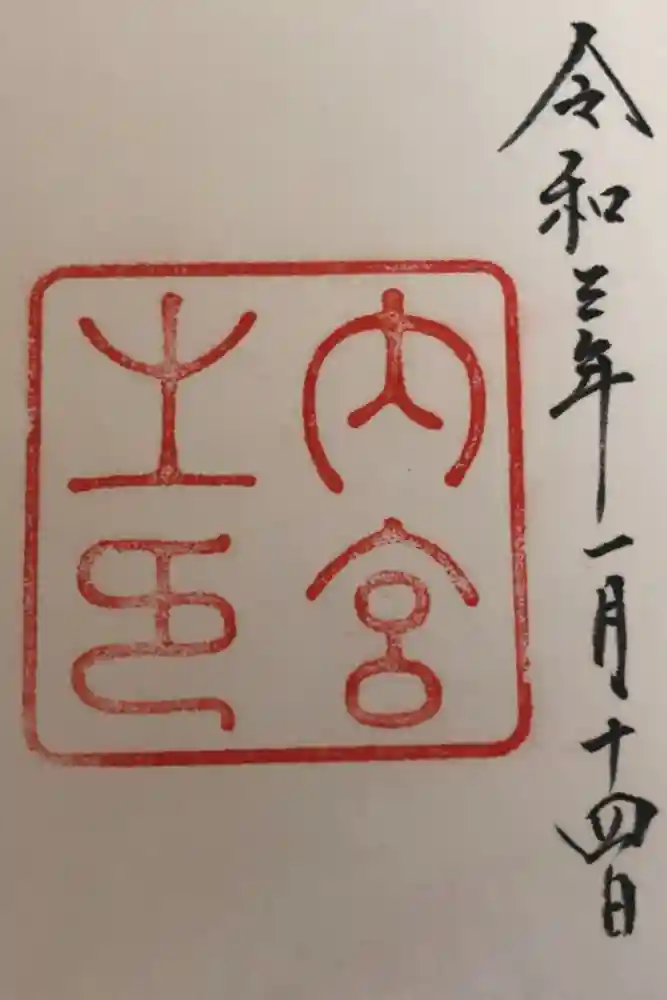 令和三年一月十四日
内宮
之印